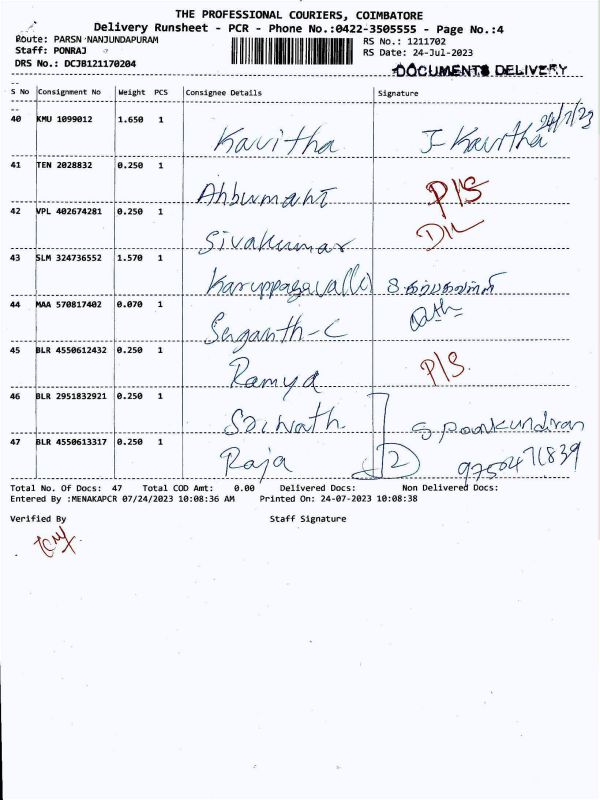 THE PROFESSIONAL COURIERS, COIMBATORE
Delivery Runsheet - PCR - Phone No.:0422-3505555 - Page No.:4
Route: PARSN NANJUNDAPURAM RS No.: 1211702
Staff: PONRAJ RS Date: 24-Jul-2023
DRS No.: DCJB121170204 DOCUMENTS DELIVERY
S No Consignment No Weight PCS Consignee Details Signature
40 KMU 1099012 1.650 1 Kavitha J-Kavitha 24/7/23
41 TEN 2028832 0.250 1 P/S
42 VPL 402674281 0.250 1 Sivakumar
43 SLM 324736552 1.570 1 Karuppagavalli
44 MAA 570817402 0.070 1
45 BLR 4550612432 0.250 1 Ramya P/S
46 BLR 2951832921 0.250 1
47 BLR 4550613317 0.250 1 Raja 2
Total No. Of Docs: 47 Total COD Amt: 0.00 Delivered Docs: Non Delivered Docs:
Entered By :MENAKAPCR 07/24/2023 10:08:36 AM Printed On: 24-07-2023 10:08:38
Verified By Staff Signature